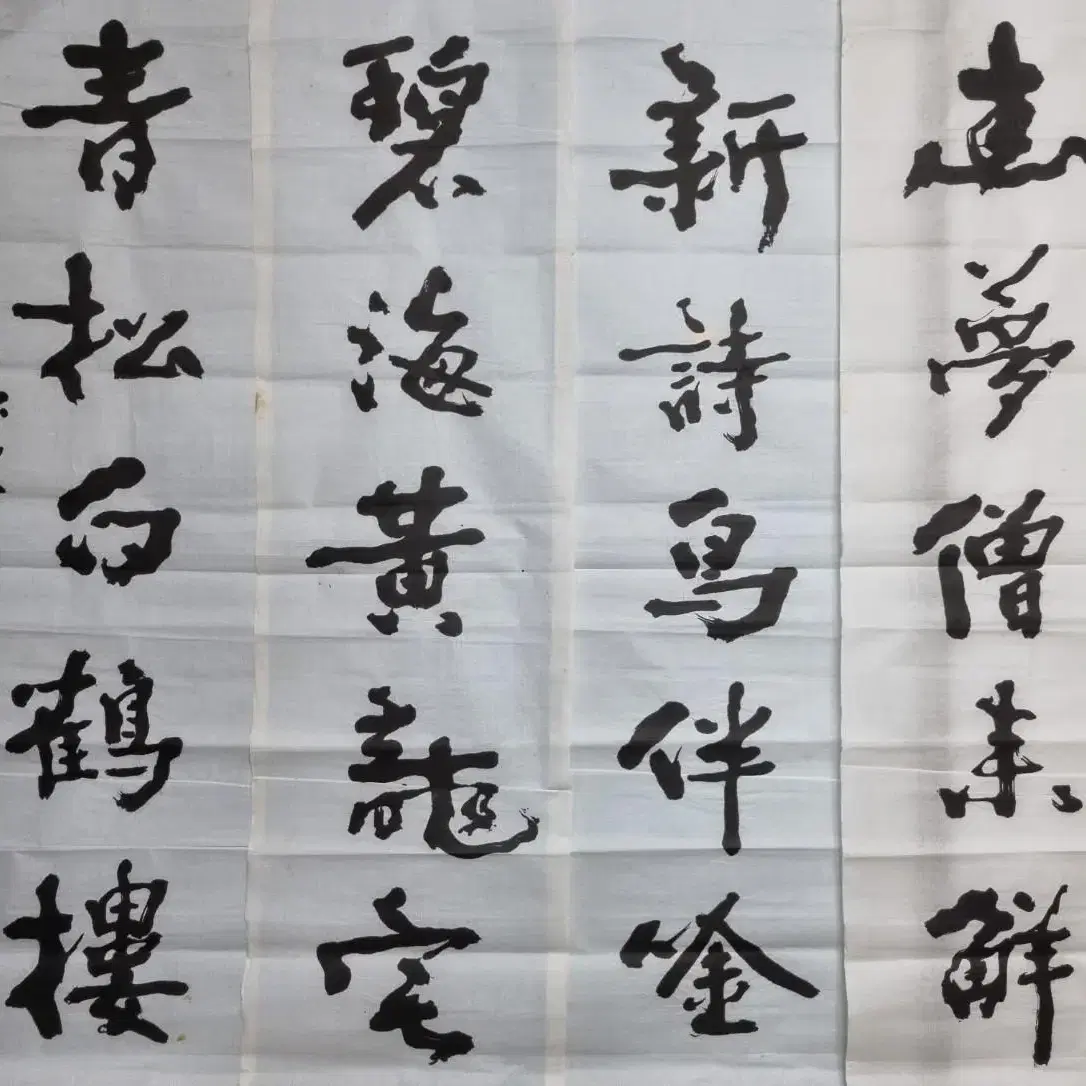 幽夢僧來觧
新詩鳥伴唫
碧海黃龍宅
青松白鶴樓